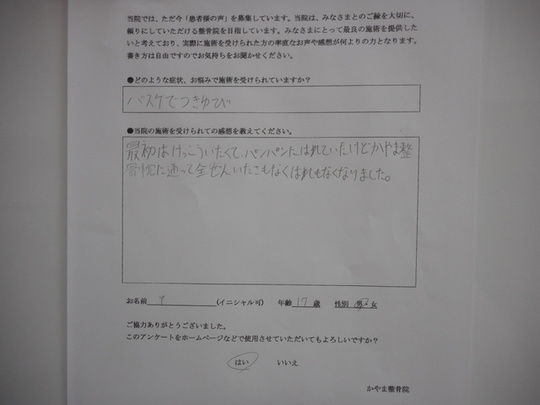 当院では、ただ今「患者様の声」を募集しています。当院は、みなさまとのご縁を大切に、
頼りにしていただける整骨院を目指しています。みなさまにとって最良の施術を提供した
いと考えており、実際に施術を受けられた方の率直なお声や感想が何よりの力となります。
書き方は自由ですのでお気持ちをお聞かせください。
●どのような症状、お悩みで施術を受けられていますか？
バスケでつきゆび
●当院の施術を受けられての感想を教えてください。
最初はけっこういたくて、パンパンにはれていたけどかやま整
骨院に通って全ぜんいたみもなくはれもなくなりました。
お名前 Y (イニシャル可) 年齢 17 歳 性別 男 女
ご協力ありがとうございました。
このアンケートをホームページなどで使用させていただいてもよろしいですか？
はい いいえ
かやま整骨院